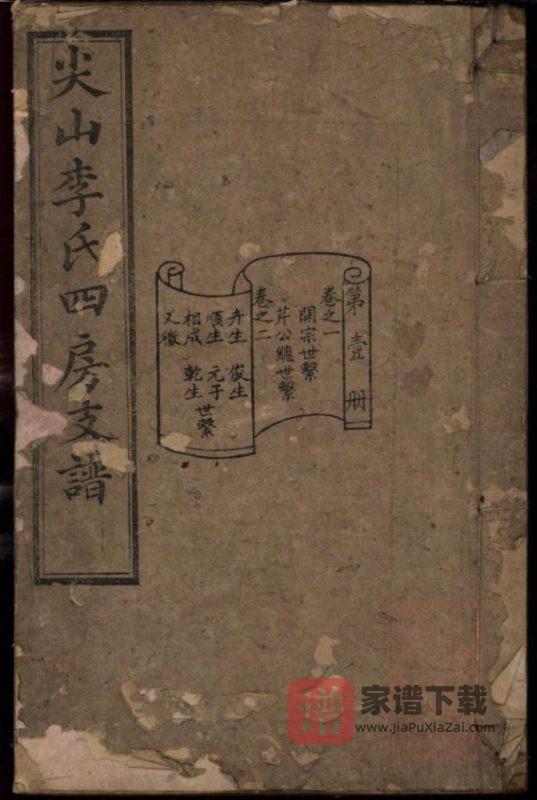 尖山李氏四房支譜
第壹册
卷之一
開宗世繫
芹公總世繫
卷之二
卉生 俊生
順生 元子
相成 乾生
又徵
世繫
譜
家谱下载
www.JiaPuXiaZai.com